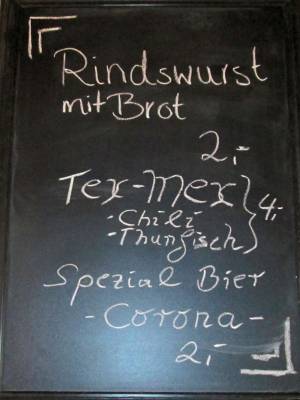 Rindswurst
mit Brot
2,-
Tex-Mex
-Chili
-Thunfisch } 4,-
Spezial Bier
-Corona-
2,-